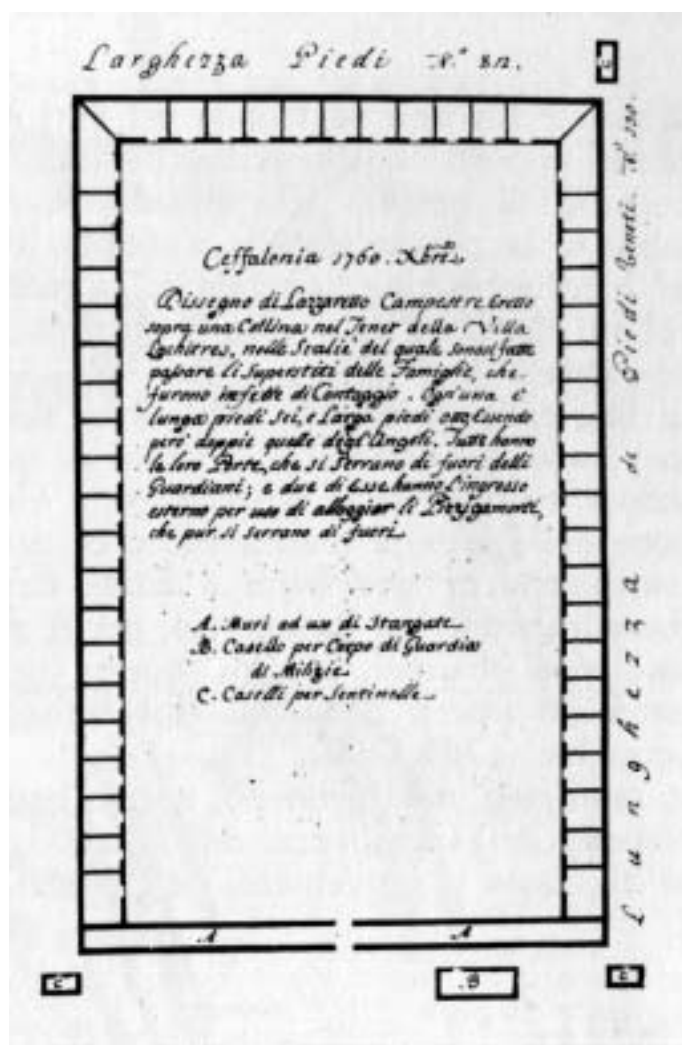 Larghezza Piedi N.º 82.
C
Ceffalonia 1760. Xbre.
Dissegno di Lazzaretto Campestre Eretto
sopra una Collina nel Tener della Villa
Lachitres, nelle Stalie del quale sonosi fatte
passare li Superstiti delle Famiglie, che
furono infette di Contaggio. Ogn'una è
lunga piedi sei, e Larga piedi otto, Essendo
però doppie quelle degl'Angoli. Tutte hanno
le loro Porte, che si Serrano di fuori delli
Guardiani; e due di esse hanno l'ingresso
esterno per uso di alloggiar li
che pur si serrano di fuori.
A. Muri ad uso di Stangate
B. Casello per Corpo di Guardia
di Milizie
C. Caselli per Sentinelle
Lunghezza de Piedi Veneti N.º
A
A
C
B
C